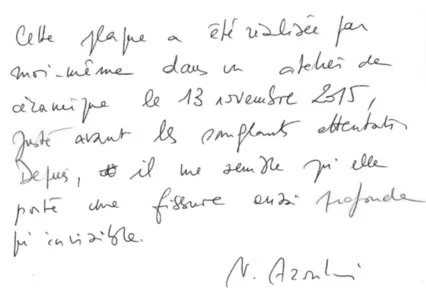 Cette plaque a été réalisée par
moi-même dans un atelier de
céramique le 13 novembre 2015,
juste avant les sanglants attentats
Depuis, il me semble qu'elle
porte une fissure aussi profonde
qu'invisible.
N.